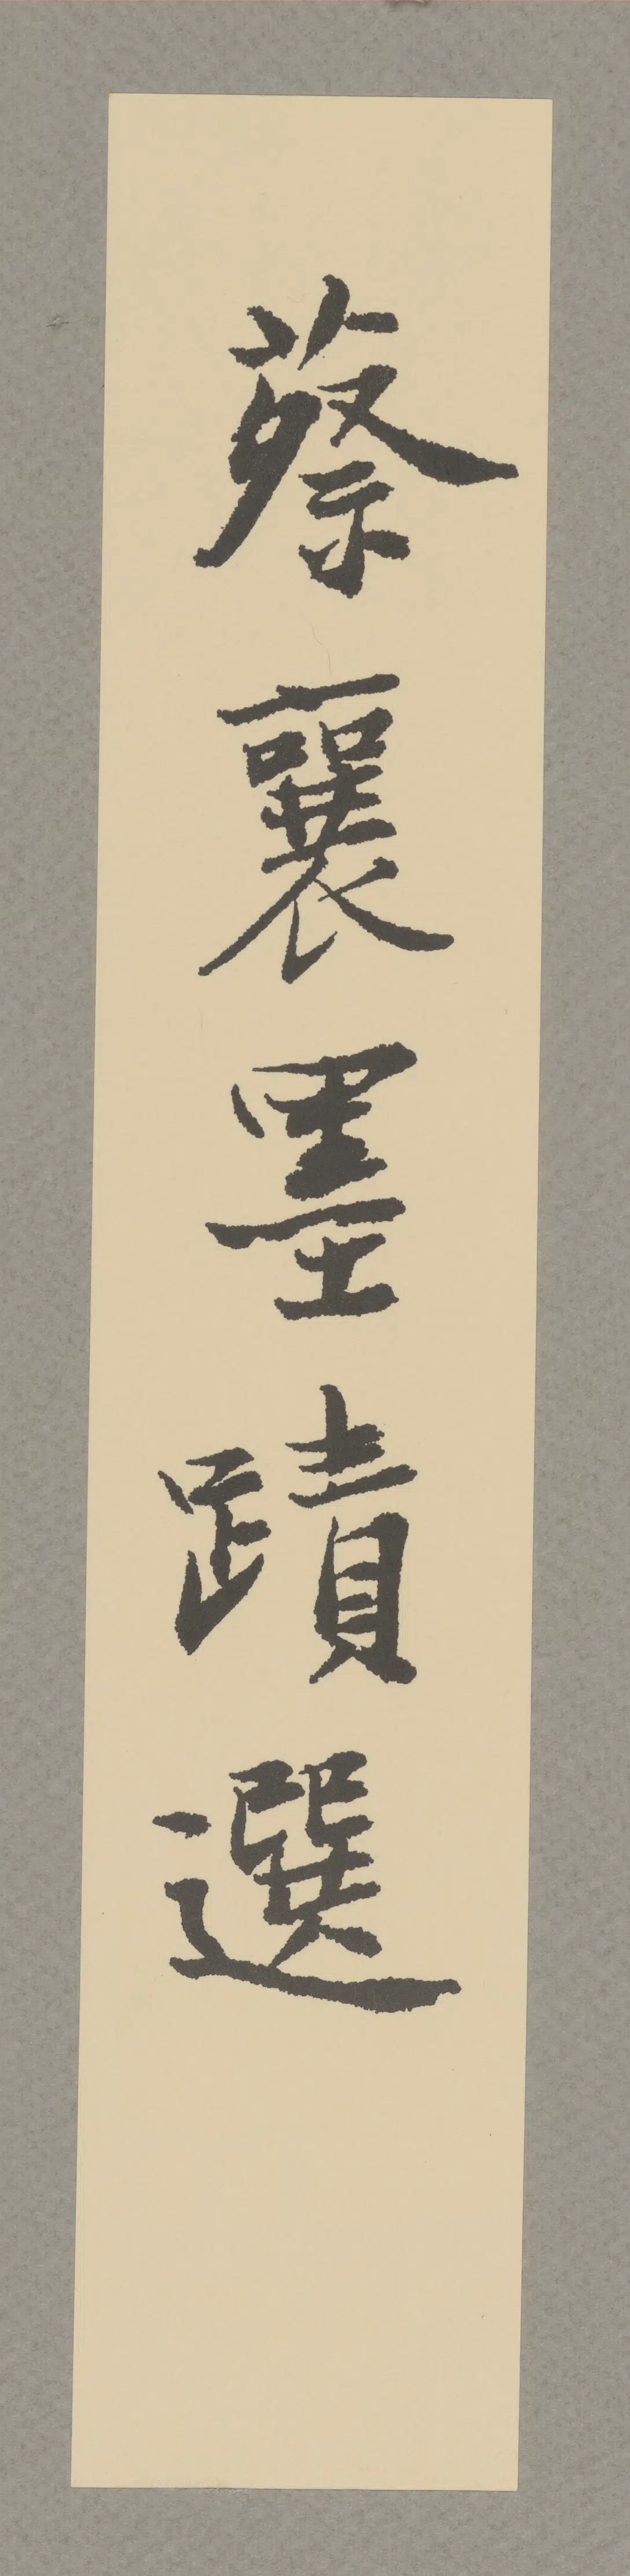 蔡襄墨蹟選